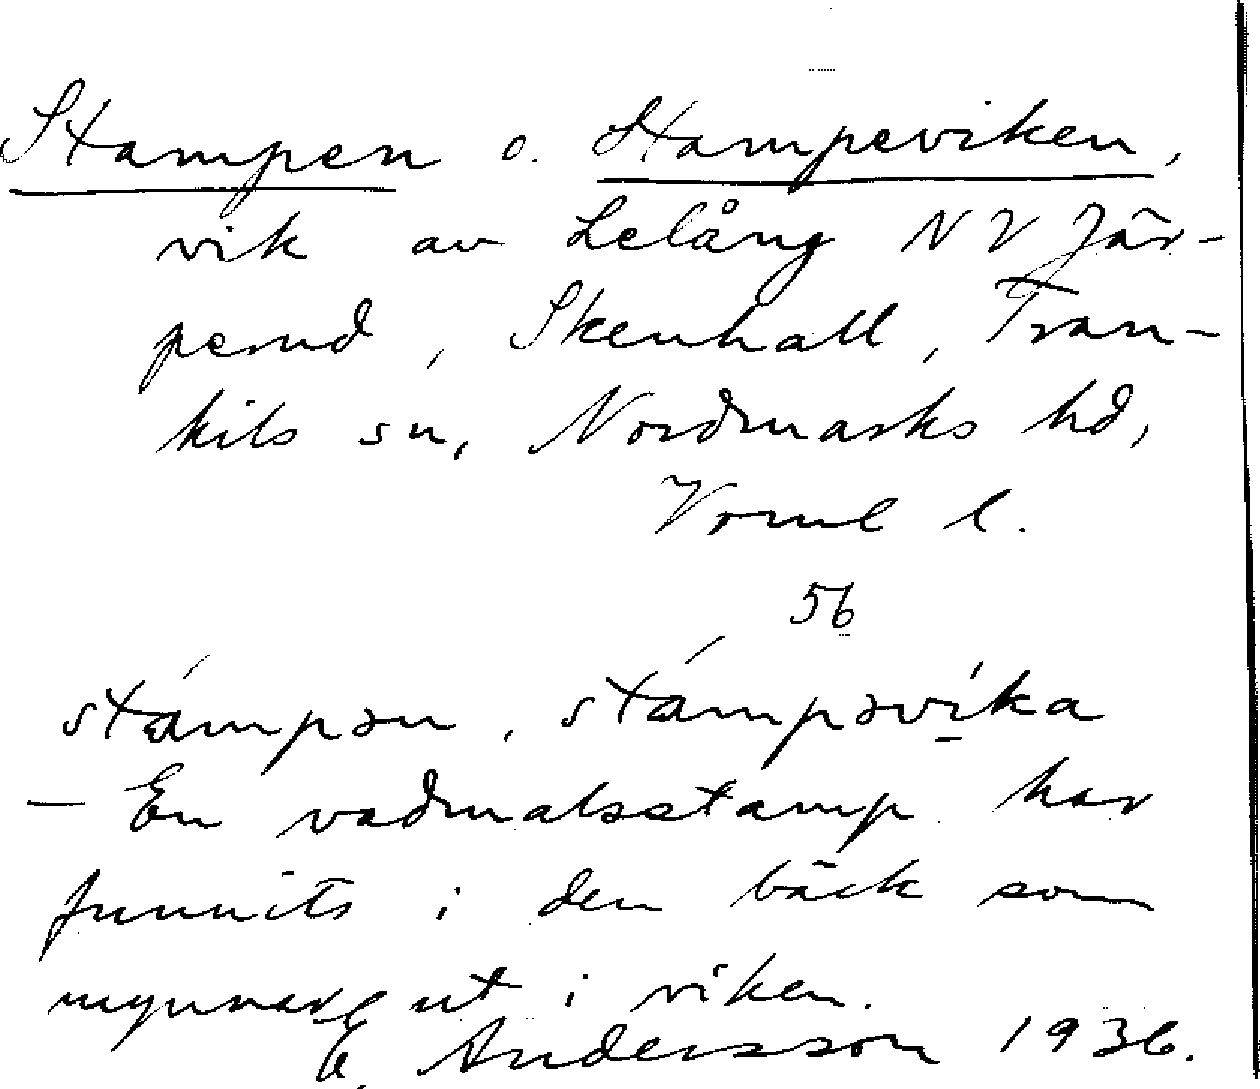 Stampen o. Stampeviken,
vik av Lelång NV Jär-
perud, Skenhall, Tran-
kils sn, Nordmarks hd,
Verml l.
56
stámpən, stámpəvi̱ka
– En vadmalsstamp har
funnits i den bäck som
mynnar ut i viken.
E. Andersson 1936.